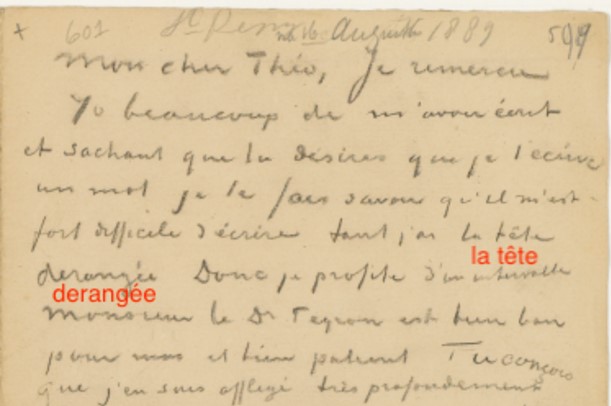 601 St Remy Augustus 1889
Mon cher Théo, Je remercie
Jo beaucoup de m'avoir écrit
et sachant que tu desires que je t'écrive
un mot je te fais savoir qu'il m'est
fort difficile d'écrire tant j'ai la tête
la tête
derangée Donc je profite d'un intervalle
derangée
Monsieur le Dr Peyron est bien bon
pour moi et bien patient Tu conçois
que j'en suis affligé très profondement